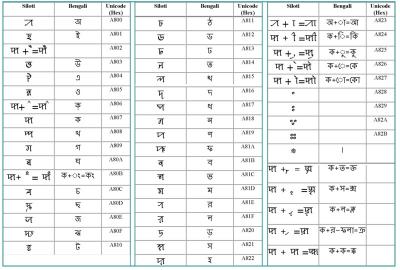 Siloti Bengali Unicode (Hex)
ꠀ অ A800
ꠁ ই A801
A802
ꠃ উ A803
ꠄ এ A804
ꠅ ও A805
ক্ A806
ꠇ ক A807
ꠈ খ A808
ꠉ গ A809
ꠊ ঘ A80A
ক+ং=কং A80B
ꠌ চ A80C
ꠍ ছ A80D
ꠎ জ A80E
ꠏ ঝ A80F
ꠐ ট A810
Siloti Bengali Unicode (Hex)
ꠑ ঠ A811
ꠒ ড A812
ꠓ ঢ A813
ꠔ ত A814
ꠕ থ A815
ꠖ দ A816
ꠗ ধ A817
ꠘ ন A818
ꠙ প A819
ꠚ ফ A81A
ꠛ ব A81B
ꠜ ভ A81C
ꠝ ম A81D
ꠞ র A81E
ꠟ ল A81F
ꠠ ড় A820
ꠡ স A821
ꠢ হ A822
Siloti Bengali Unicode (Hex)
অ+া=আ A823
ক+ি=কি A824
ক+ু=কু A825
ক+ে=কে A826
ক+ো=কো A827
꠨ A828
꠩ A829
꠪ A82A
꠫ A82B
।
ক+ত=ক্ত
ক+স=ক্স
ক+ল=ক্ল
ক+র-ফলা=ক্র
ক+ক=ক্ক